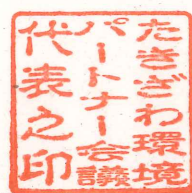 たきざわ環境
パートナー会議
代表之印